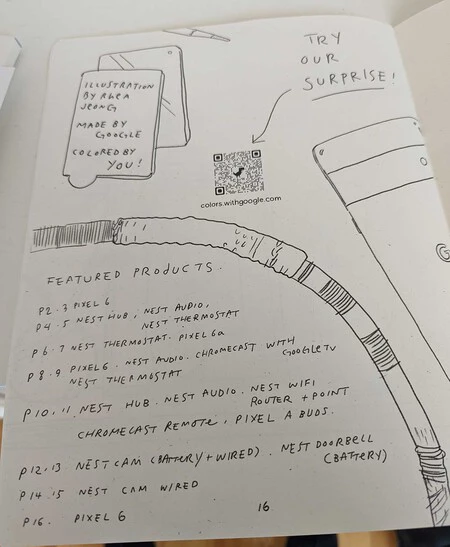 TRY
OUR
SURPRISE!
ILLUSTRATION
BY RHEA
JEONG
MADE BY
GOOGLE
COLORED BY
YOU!
colors.withgoogle.com
G
FEATURED PRODUCTS.
P2.3 PIXEL 6
P4.5 NEST HUB, NEST AUDIO,
NEST THERMOSTAT
P6.7 NEST THERMOSTAT. PIXEL 6a
P8.9 PIXEL 6. NEST AUDIO. CHROMECAST WITH
GOOGLE TV
NEST THERMOSTAT
P10.11 NEST HUB. NEST AUDIO. NEST WIFI
ROUTER + POINT
CHROMECAST REMOTE, PIXEL A BUDS.
P12.13 NEST CAM (BATTERY + WIRED). NEST DOORBELL
(BATTERY)
P14.15 NEST CAM WIRED
P16. PIXEL 6
16